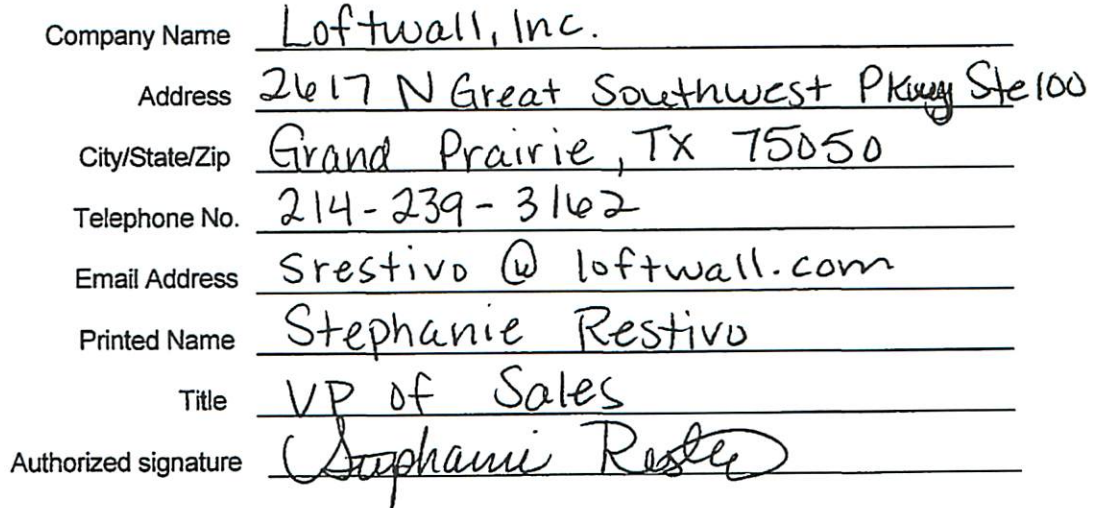 Company Name Loftwall, Inc.
Address 2617 N Great Southwest Pkwy Ste 100
City/State/Zip Grand Prairie, TX 75050
Telephone No. 214-239-3162
Email Address srestivo@loftwall.com
Printed Name Stephanie Restivo
Title VP of Sales
Authorized signature Stephanie Restivo